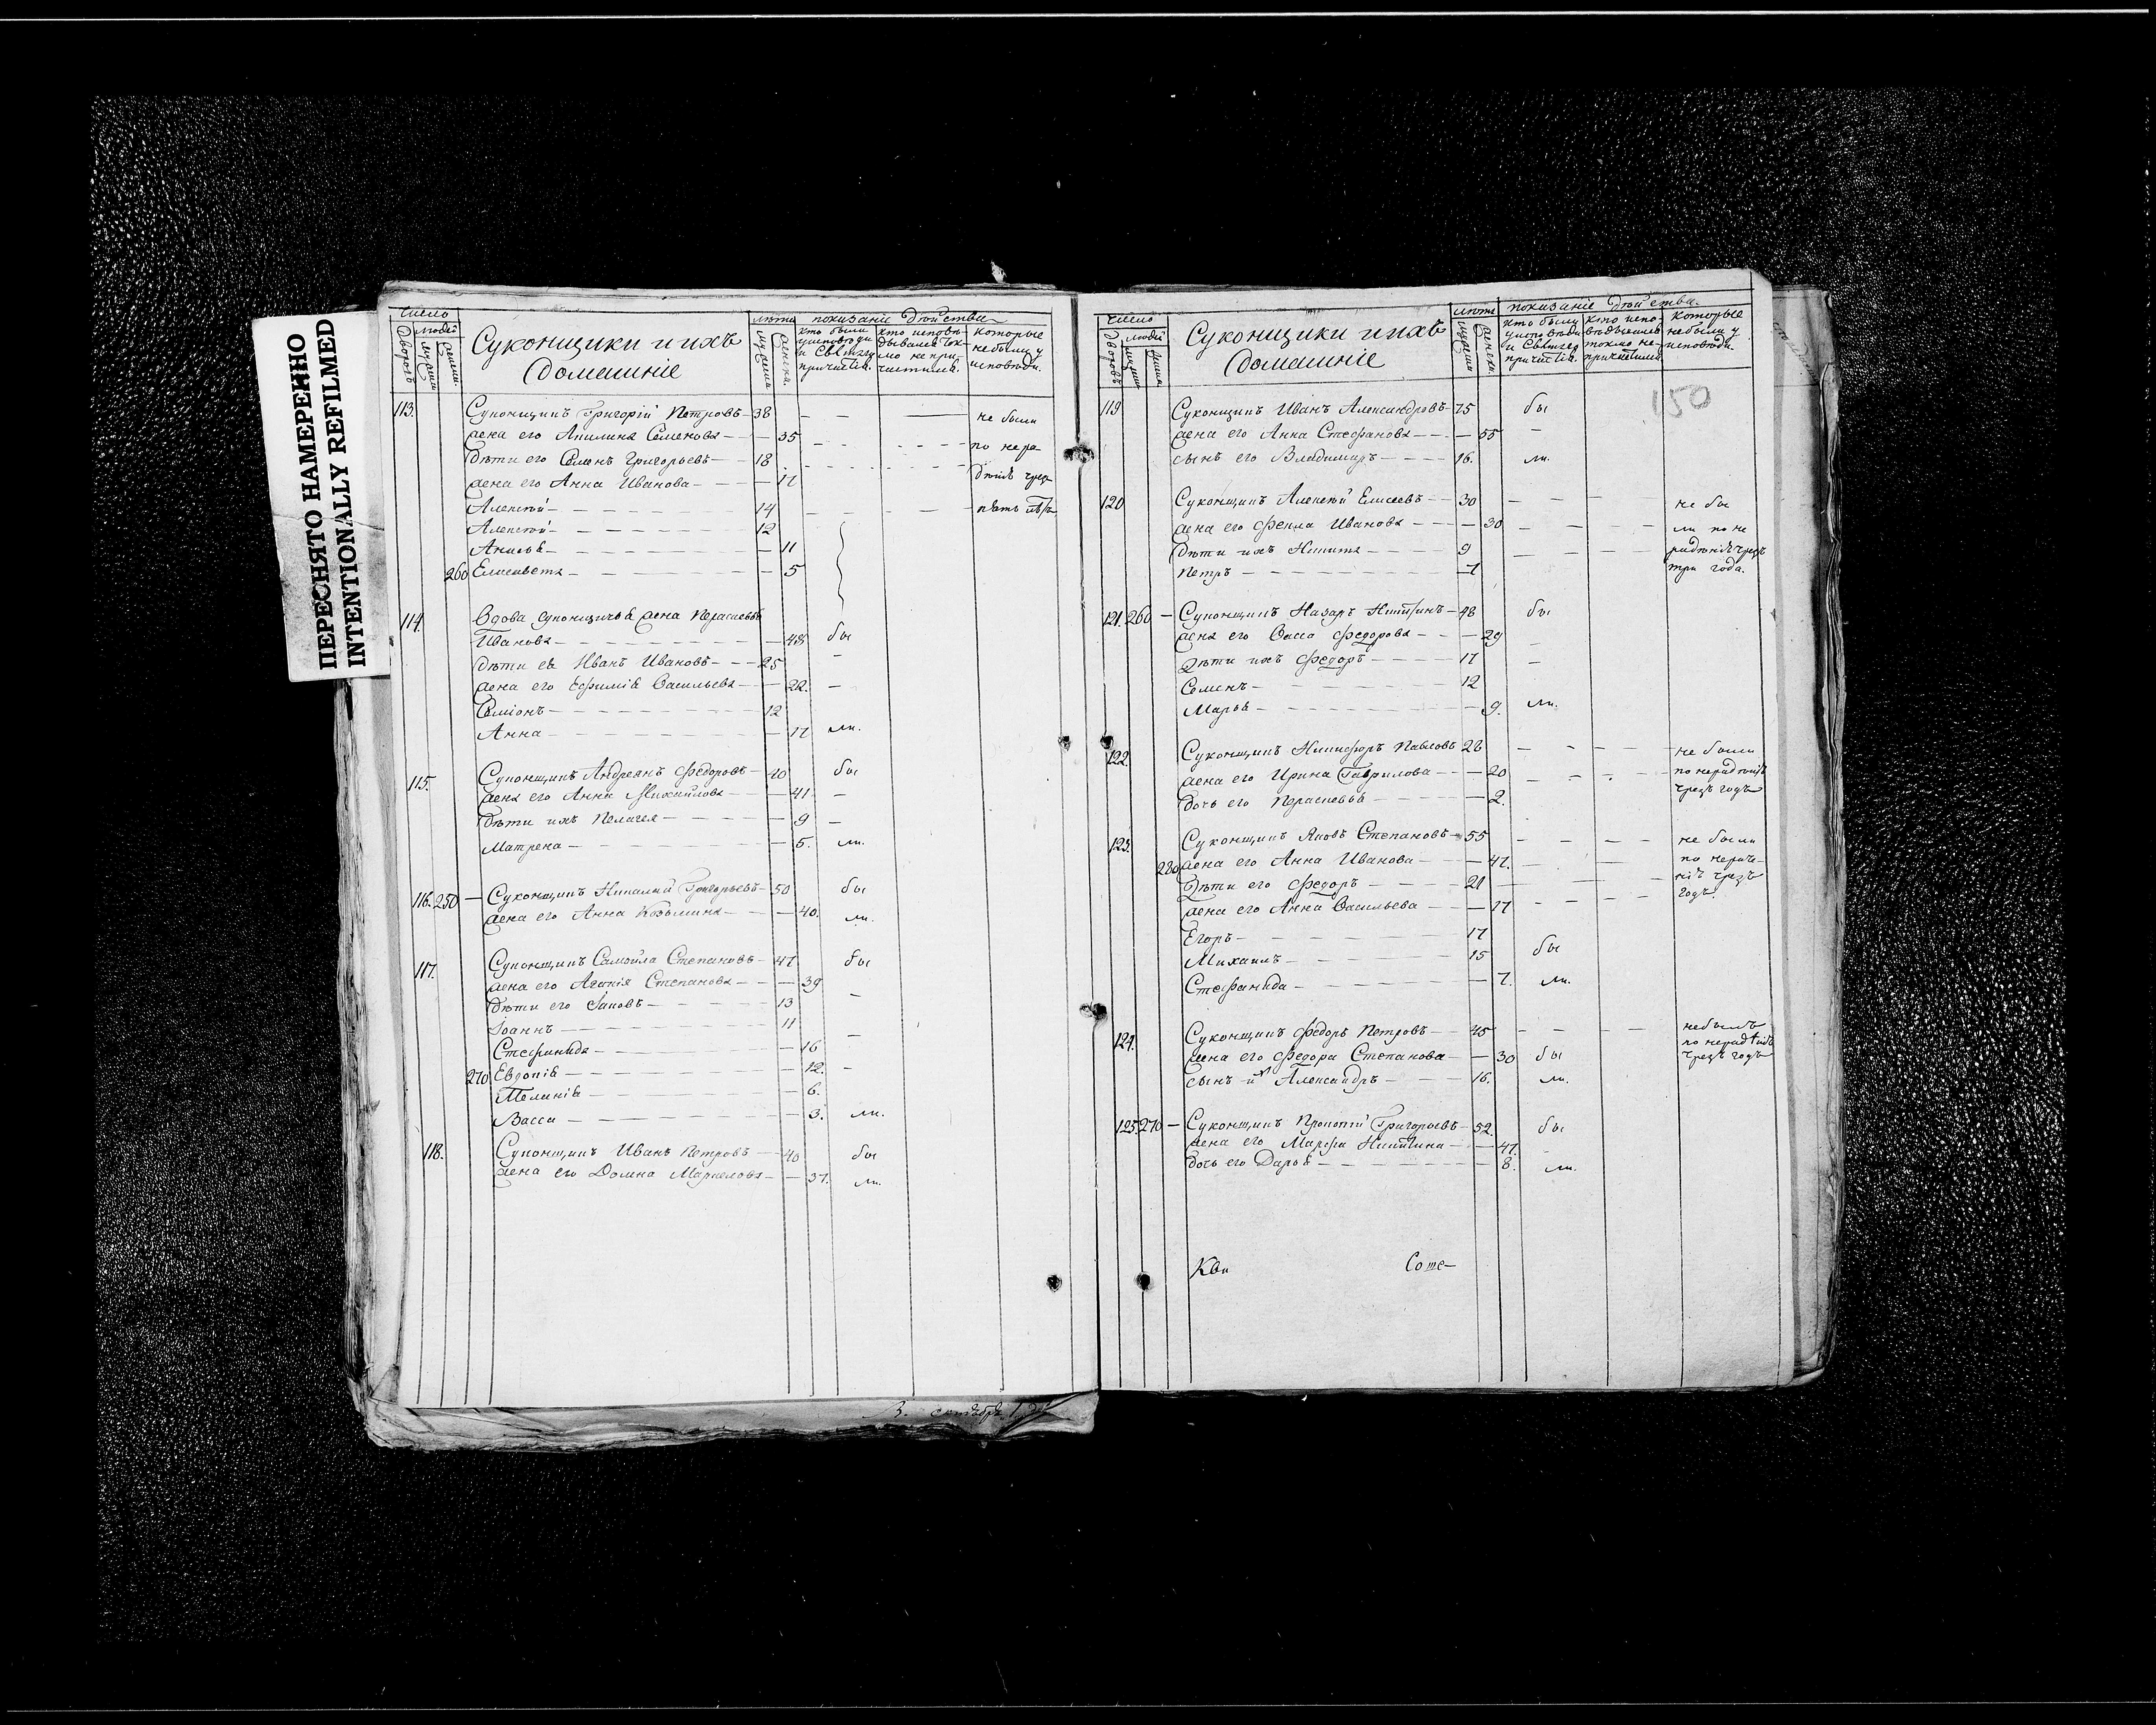 ПЕРЕСНЯТО НАМЕРЕННО
INTENTIONALLY REFILMED
число
лѣта
показаніе дѣйства
Дворовъ
людей
Суконщики и ихъ
домашніе
кто были
у исповѣди
и Свѧтаго
причастіѧ.
кто исповѣ-
дывался ток-
мо не при-
частился.
которые
не были у
исповѣди.
113. Суконщикъ Григорій Петровъ — 38 — — не были
жена его Акилина Семенова — — 35 по нера-
дѣти его Семенъ Григорьевъ — 18
жена его Анна Иванова — — 17 дѣнію чрез
Алексѣй — 14
Алексѣй — 12
Анисьѧ — 11
260 Елисавета — 5
114. Вдова суконщичьѧ жена Параскевьѧ
Иванова — 48 бы
дѣти еѧ Иванъ Ивановъ — 25 —
жена его Ефиміѧ Васильева — 22. —
Симіонъ — 12
Анна — 17 ли.
115. Суконщикъ Андреянъ Федоровъ — 40 бы
жена его Анна Михайлова — 41 —
дѣти ихъ Пелагея — 9 —
Матрена — 5. ли.
116. 250 — Суконщикъ Николай Григорьевъ — 50 бы
жена его Анна Козьмина — 40. ли.
117. Суконщикъ Самойла Степановъ — 47 бы
жена его Агапія Степанова — 39
дѣти его Іаковъ — 13 —
Іоаннъ — 11
Стефанида — 16 —
270 Евдокіѧ — 12. —
Меланіѧ — 6.
Васса — 3. ли.
118. Суконщикъ Иванъ Петровъ — 40 бы
жена его Домна Маркелова — 37. ли.
число
лѣта
показаніе дѣйства.
Дворовъ
людей
Суконщики и ихъ
домашніе
кто были
у исповѣди
и Свѧтаго
причастіѧ.
кто испо-
вѣдывался
токмо не-
причастился
которые
не были у
исповѣди.
150
119 Суконщикъ Иванъ Александровъ — 75 бы
жена его Анна Стефанова — 55 —
сынъ его Владимиръ — 16. ли.
120 Суконщикъ Алексѣй Елисеевъ — 30 — — — не бы
жена его Фекла Иванова — 30 — — — ли по не
дѣти ихъ Никита — 9 — — — радѣнію чрезъ
Петръ — 7 три года.
121. 260 — Суконщикъ Назаръ Никитинъ — 48 бы
жена его Васса Федорова — 29 —
дѣти ихъ Федоръ — 17 —
Семенъ — 12
Марьѧ — 9. ли.
122. Суконщикъ Никифоръ Павловъ 28 — — — не были
жена его Ирина Гаврилова — 20 — — — по нерадѣнію
дочь его Параскевьѧ — 2. чрезъ годъ
123. Суконщикъ Яковъ Степановъ — 55 — — — не были
280 жена его Анна Иванова — 47. — —
дѣти его Федоръ — 21 — — нію чрезъ
жена его Анна Васильева — 17 — — — годъ.
Егоръ — 17
Михаилъ — 15 бы
Стефанида — 7. ли.
124. Суконщикъ Федоръ Петровъ — 45 — — — не былъ
жена его Федора Степанова — 30 бы по нерадѣнію
сынъ ихъ Александръ — 16. ли. чрезъ годъ
125. 270 — Суконщикъ Прокопій Григорьевъ — 52. бы
жена его Марфа Никитина — 47. —
дочь его Дарьѧ — 8. ли.